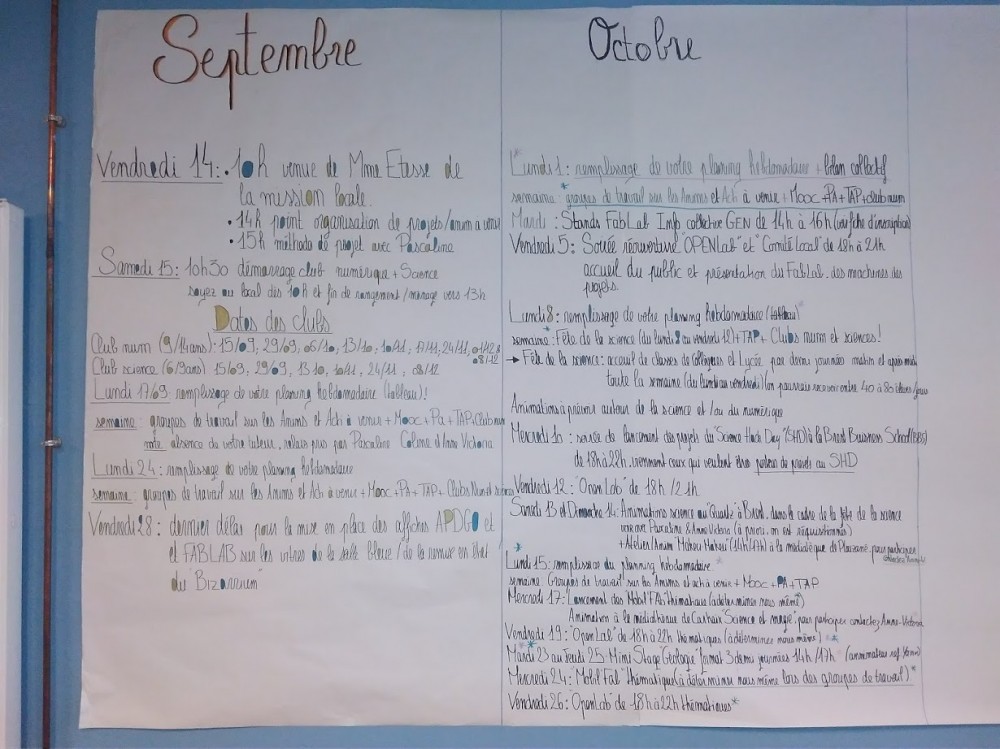 Septembre
Vendredi 14: • 10h venue de Mme Etesse de
la mission locale.
• 14h point organisation de projets/anim a venir
• 15h méthodo de projet avec Pascaline
Samedi 15: 10h30 démarrage club numérique + Science
soyez au local dès 10h et fin de rangement/ménage vers 13h
Dates des clubs
Club num (9/14ans): 15/09, 29/09, 06/10, 13/10, 10/11, 17/11, 24/11, 01/12 &
08/12
Club science (6/9ans) 15/09, 29/09, 13/10, 10/11, 24/11, 08/12
Lundi 17/09: remplissage de votre planning hebdomadaire (tableau)!
semaine: groupes de travail sur les Anims et Acti à venir + Mooc + Pa + TAP + Club num
note absence de votre tuteur, relais pris par Pascaline Coline d'Anne Victoria
Lundi 24: remplissage de votre planning hebdomadaire
semaine: groupes de travail sur les Anims et Acti à venir + Mooc + PA + TAP + Clubs Num et sciences
Vendredi 28: dernier délai pour la mise en place des affiches APDGO et
et FABLAB sur les vitres de la salle bleue/de la remise en état
du "Bizarrium"
Octobre
Lundi 1: remplissage de votre planning hebdomadaire + bilan collectif
semaine: groupes de travail sur les Anims et Acti à venir + Mooc + PA + TAP + club num
Mardi: Stands FabLab Info collective GEN de 14h à 16h (voir fiche d'inscription)
Vendredi 5: Soirée réouverture "OPENLab" et "Comité Local" de 18h à 21h
accueil du public et présentation du FabLab, des machines des
projets.
Lundi 8: remplissage de votre planning hebdomadaire (tableau)*
semaine: Fête de la science (du lundi 8 au vendredi 12) + TAP + Clubs num et sciences!
→ Fête de la science: accueil de classes de collégiens et Lycée par demi journées matin et après midi
toute la semaine (du lundi au vendredi) (on pourrait recevoir entre 40 à 80 élèves/jour
Animations à prévoir autour de la science et/ou du numérique
Mercredi 10: soirée de lancement des projets du "Science Hack Day" (SHD) à la Brest Business School (BBS)
de 18h à 22h, viennent ceux qui veulent être porteur de projets au SHD
Vendredi 12: "OpenLab" de 18h/21h.
Samedi 13 et Dimanche 14: Animations science au "Quartz" à Brest, dans le cadre de la fête de la science
voir avec Pascaline & Anne Victoria (à priori, on est réquisitionnés)
+ Atelier/Anim "Makey Makey" (14h/17h) à la médiathèque de Plouzané, pour participer
Lundi 15: remplissage du planning hebdomadaire *
semaine: Groupes de travail sur les Anims et acti à venir + Mooc + PA + TAP
Mercredi 17: Lancement des "Mobil'FAb" thématique (à déterminer nous même)
Animation à la médiathèque de Carhaix "Science et magie", pour participer contactez Anne-Victoria
Vendredi 19: "OpenLab" de 18h à 22h thématiques (à déterminer nous même) *
Mardi 23 au Jeudi 25 Mini Stage "Géologie" format 3 demi journées 14h/17h (animateurs ref. Yann)
Mercredi 24: "Mobil Fab" thématique (à déterminer nous même lors des groupes de travail)*
Vendredi 26: "OpenLab" de 18h à 22h thématiques*